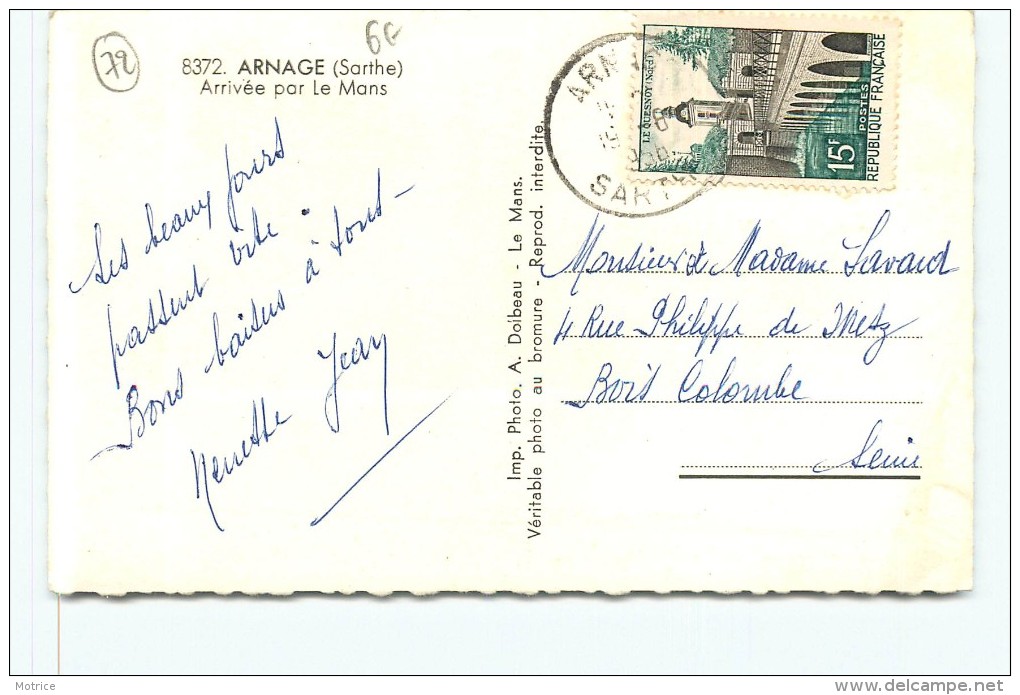 72
6F
8372. ARNAGE (Sarthe)
Arrivée par Le Mans
Les beaux jours
passent vite.
Bons baisers à tous -
Nenette Jean
Imp. Photo. A. Dolbeau - Le Mans.
Véritable photo au bromure - Reprod. interdite.
LE QUESNOY (Nord)
15F
POSTES
REPUBLIQUE FRANÇAISE
SARTHE
Monsieur et Madame Savard
4 Rue Philippe de Metz
Bois Colombe
Seine
Motrice
www.delcampe.net